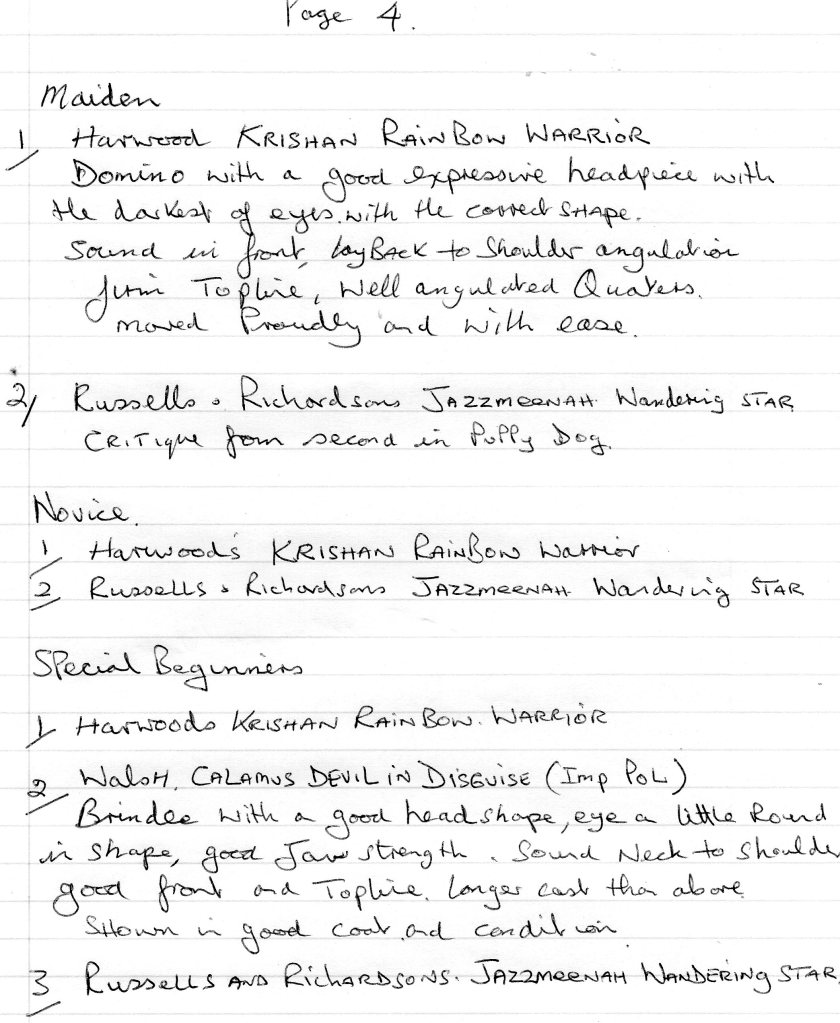 Page 4.
Maiden
1/ Harwood KRISHAN RAINBOW WARRIOR
Domino with a good expressive headpiece with
the darkest of eyes. with the correct SHAPE.
Sound in front, layBACK to Shoulder angulation
firm Topline, Well angulated Quaters.
moved Proudly and with ease.
2/ Russells & Richardsons JAZZMEENAH Wandering STAR
CRITIQUE from second in PUPPY Dog.
Novice.
1/ Harwoods KRISHAN RAINBOW Warrior
2/ RussELLS & Richardsons JAZZMEENAH Wandering STAR
SPecial Beginners
1/ HARWOODS KRISHAN RAINBOW. WARRIOR
2/ WALSH. CALAMUS DEVIL IN DISGUISE (Imp POL)
Brindle with a good head shape, eye a little Round
in shape, good Jaw strength. Sound Neck to Shoulder
good front and Topline. longer cast than above
SHown in good coat and condition
3/ RUSSELLS AND RICHARDSONS. JAZZMEENAH WANDERING STAR.